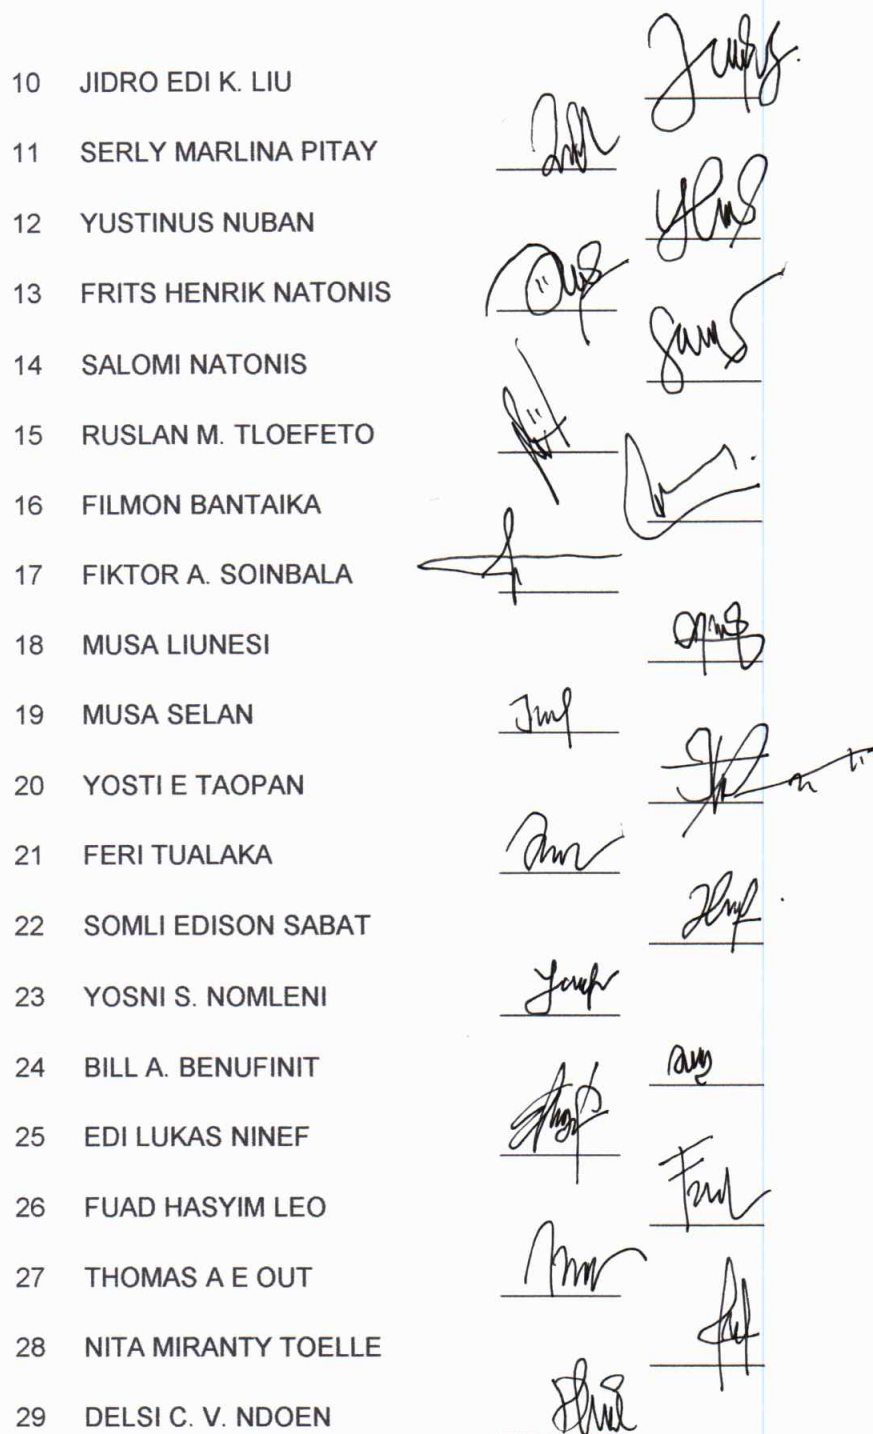 10 JIDRO EDI K. LIU
11 SERLY MARLINA PITAY
12 YUSTINUS NUBAN
13 FRITS HENRIK NATONIS
14 SALOMI NATONIS
15 RUSLAN M. TLOEFETO
16 FILMON BANTAIKA
17 FIKTOR A. SOINBALA
18 MUSA LIUNESI
19 MUSA SELAN
20 YOSTI E TAOPAN
21 FERI TUALAKA
22 SOMLI EDISON SABAT
23 YOSNI S. NOMLENI
24 BILL A. BENUFINIT
25 EDI LUKAS NINEF
26 FUAD HASYIM LEO
27 THOMAS A E OUT
28 NITA MIRANTY TOELLE
29 DELSI C. V. NDOEN